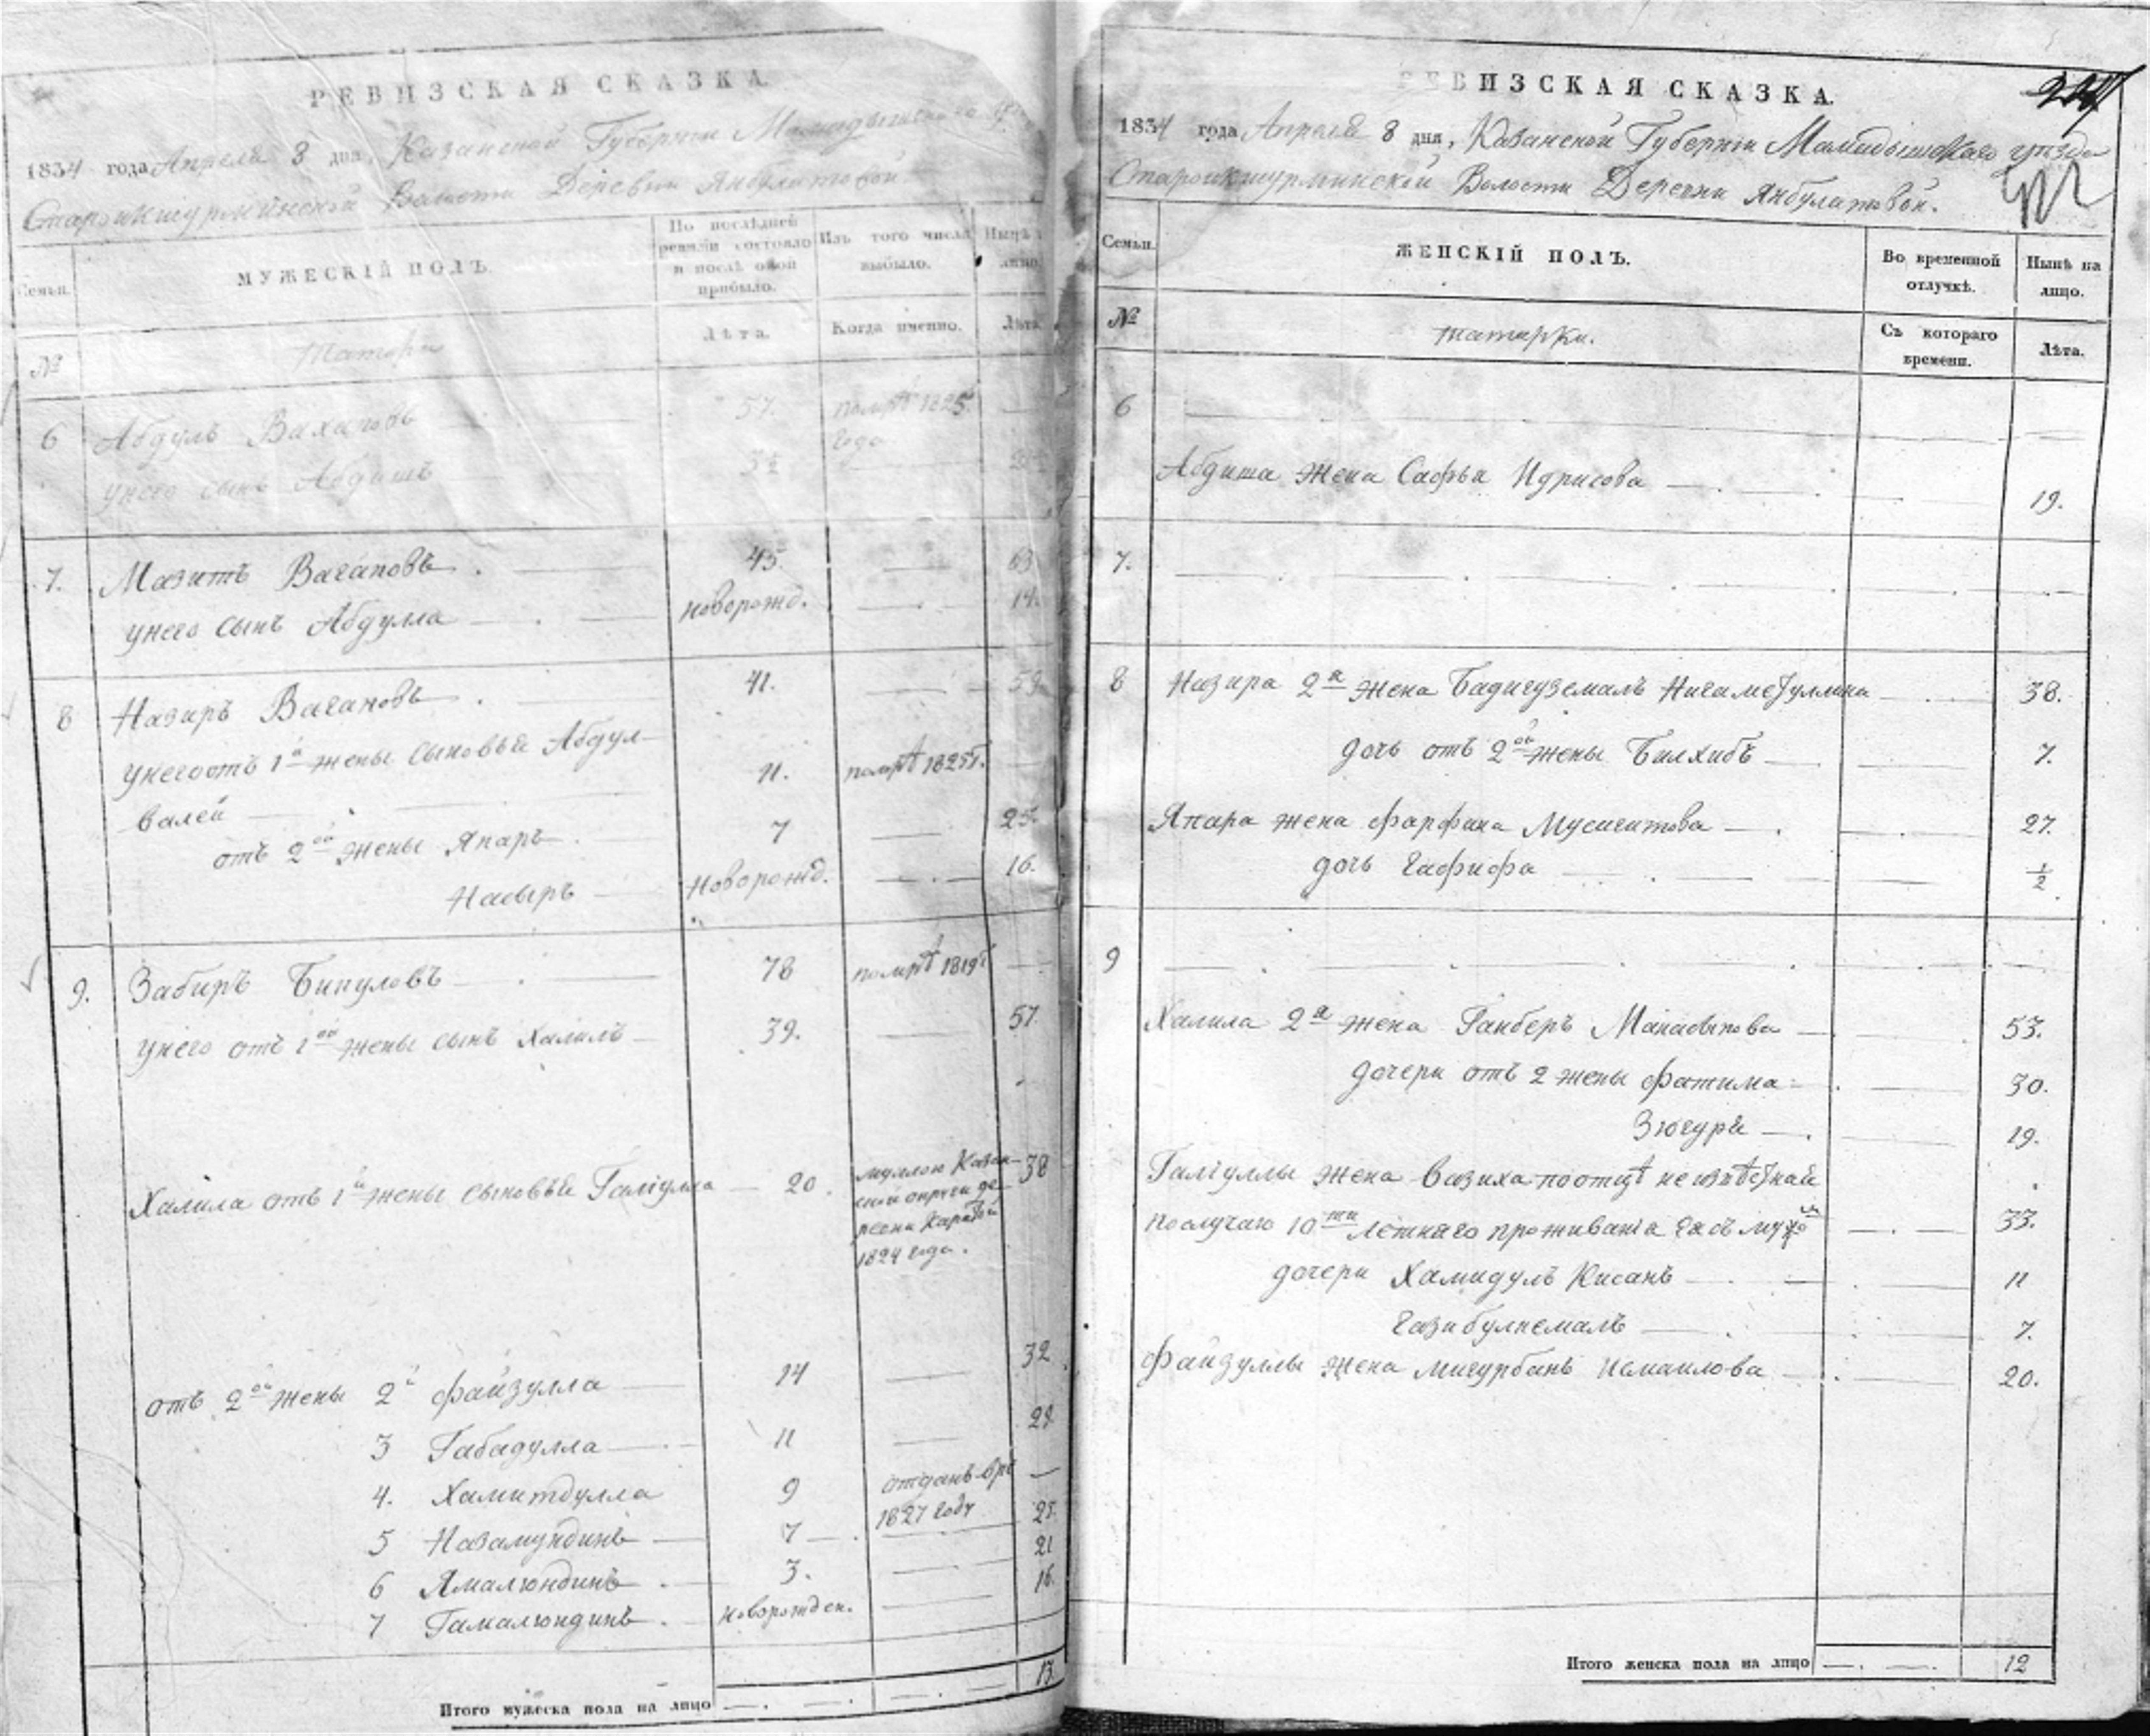 РЕВИЗСКАЯ СКАЗКА.
1834 года Апреля 8 дня, Казанской Губернiи Мамадышскаго
Староикшурминской Волости Деревни Янбулатовой
Семьи.
МУЖЕСКІЙ ПОЛЪ.
По послѣдней ревизіи состояло и послѣ оной прибыло.
Изъ того числа выбыло.
Нынѣ на лицо.
№
Татары
Лѣта.
Когда именно.
Лѣта
6 Абдулъ Вахаповъ 57. помрѣ 1825. года
унего сынъ Абдишъ
7. Мазитъ Вагаповъ 45. 63
унего сынъ Абдулла новорожд. 14.
8 Назиръ Вагаповъ 41. 59
унего отъ 1й жены сыновья Абдул- 11. помрѣ 1825г.
валей
отъ 2ой жены Япаръ 7 25.
Насыръ Новорожд. 16.
9. Забиръ Бикуловъ 78 помрѣ 1819г
унего отъ 1ой жены сынъ Халилъ 39. 57.
Халила отъ 1й жены сыновья Галіулла 20. муллою Казан- 38
ской округи де-
ревни
1824 года.
отъ 2ой жены 2й Файзулла 14 32
3 Габадулла 11 29.
4. Хамитдулла 9 отданъ врѣ
1827 году
5 Назамундинъ 7 25.
6 Ямалюндинъ 3. 21
7 Гамалюндинъ новорожден. 16.
Итого мужеска пола на лицо 13
РЕВИЗСКАЯ СКАЗКА.
1834 года Апреля 8 дня, Казанской Губернiи Мамадышскаго уѣзда
Староикшурминской Волости Деревни Янбулатовой.
Семьи.
ЖЕНСКІЙ ПОЛЪ.
Во временной отлучкѣ.
Нынѣ на лицо.
№
татарки.
Съ котораго времени.
Лѣта.
6
Абдиша жена Сафья Идрисова 19.
7.
8 Назира 2я жена Бадигуземалъ Нигаметуллина 38.
дочь отъ 2ой жены Билхибъ 7.
Япара жена Фарфина Мусигитова 27.
дочь Гафифа 1/2
9
Халила 2я жена Ганберъ Манасыпова 53.
дочери отъ 2 жены Фатима 30.
Зюгуря 19.
Галіуллы жена Вазиха поотцѣ не извѣстная
послучаю 10ти летнаго проживанія ея съ мужомъ 33.
дочери Хамидулъ Кисанъ 11
Газибулкемалъ 7.
Файзуллы жена Мигурбанъ Исмаилова 20.
Итого женска пола на лицо 12